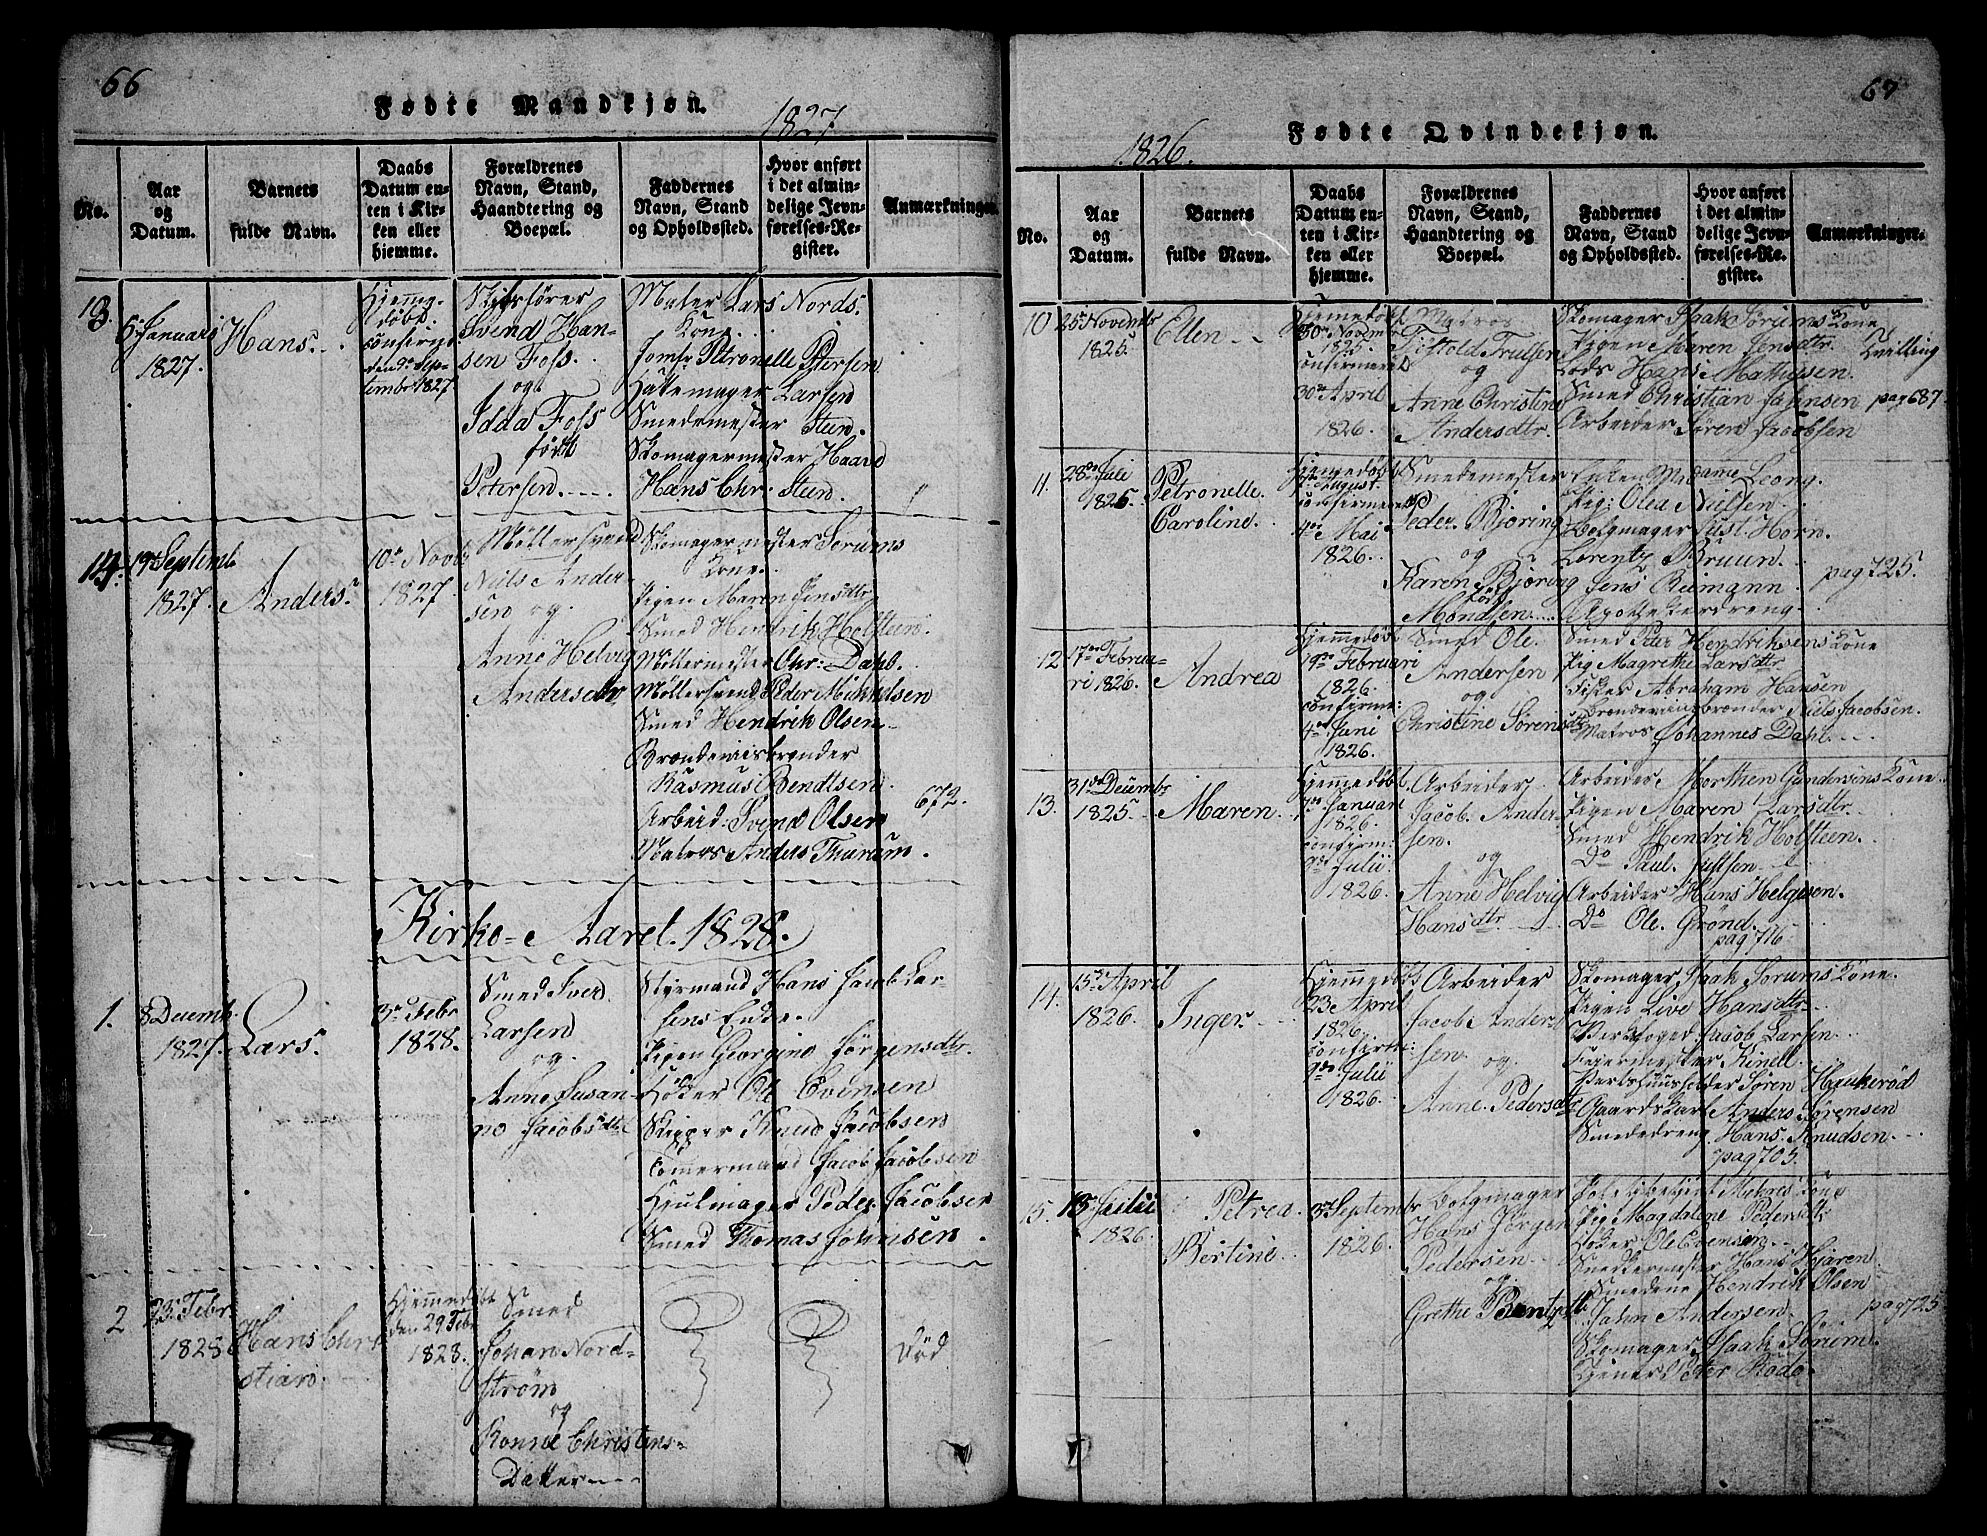 66
Fødte Mandkjøn.
1827
No.
Aar og Datum.
Barnets fulde Navn.
Daabs Datum enten i Kirken eller hjemme.
Forældrenes Navn, Stand, Haandtering og Boepæl.
Faddernes Navn, Stand og Opholdssted.
Hvor anført i det almindelige Jevnførelses-Register.
Anmærkninger.
13.
6te Januari
1827.
Hans.
Hjemme-
døbt
confirm
den 9de Sep-
tembr 1827
Skibsfører
Svend Han-
sen Foss.
og
Idda Foss
født
Petersen.
Mater Lars Nords.
Kone.
Jomfr Petronelle Petersen
Hattemager Larsen
Smedemester Steen.
Skomagermester Haard
Hans Chr. Steen.
14.
19de Septemb.
1827.
Anders.
10de Novbr
1827.
Møllersvend
Niels Ander-
sen og
Anne Helvig
Andersdtr
Skomagermester Sørums
Kone.
Pigen Maren Jensdtr
Smed Hendrik Holsteen.
Møllermester Chr: Dahl.
Møllersvend Peder Mikkelsen
Smed Hendrik Olsen
Brændeviinsbrænder
Rasmus Bendtsen.
Arbeid: Svend Olsen
Maters Anders Thuram.
672.
Kirke-Aaret 1828.
1.
8 Decemb.
1827.
Lars.
3de Febr
1828.
Smed Iver
Larsen
og
Anne Susan-
ne Jacobsdtr
Styrmand Hans Jacob Lar-
sens Enke.
Pigen Georgine Jørgensdtr.
Høker Ole Evensen
Skipper Knud Jacobsen
Tømmermand Jacob Jacobsen
Hjulmager Peder Jacobsen
Smed Thomas Johnsen.
2
23de Febr.
1828
Hans Chri-
stian.
Hjemmedøbt
den 29 Febr
1828.
Smed
Johan Nord-
strøm
og
Christens-
Datter
Død
67
Fødte Qvindekjøn.
1826.
No.
Aar og Datum.
Barnets fulde Navn.
Daabs Datum enten i Kirken eller hjemme.
Forældrenes Navn, Stand, Haandtering og Boepæl.
Faddernes Navn, Stand og Opholdssted.
Hvor anført i det almindelige Jevnførelses-Register.
Anmærkninger.
10.
25de Novembr
1825.
Ellen
Hjemmedøbt
30de Novembr
1825.
Confirmeret
30de April
1826.
Matros
Truelsen
og
Anne Christine
Andersdtr.
Skomager Isaak Sørums Kone
Pigen Maren Jensdtr
Lods Hans Mathisen.
Smed Christian Johnsen
Arbeider Søren Jacobsen
Tvilling
pag 687
11.
28de Juli
1825.
Petronelle
Caroline.
Hjemmedøbt
August
Confirmeret
4de Mai
1826.
Smedemester
Peder Bjøring
og
Karen Bjøring
født
Enken Madame Leong.
Pig: Olea Nielsen
Bolgmager Just Horn.
Lorentz Bruun.
Jens Reimann
Apothekerdreng.
pag 725.
12
17de Februa-
ri 1826.
Andrea
Hjemmedøbt
19de Februari
1826.
Confirme:
4de Juni
1826.
Smed Ole.
Andersen
og
Christine Sørensdtr
Smed Peter Hendriksens Kone
Pig Magrethe Larsdtr
Fisker Abraham Hansen
Brændeviinsbrænder Niels Jacobsen.
Matros Johannes Dahl.
13.
31de Decembr
1825.
Maren.
Hjemmedøbt
7de Januari
1826.
Confirm:
9de Julii
1826.
Arbeider
Jacob. Ander-
sen.
og
Anne Helvig
Hansdtr.
Arbeider Morthen Gundersens Kone.
Pigen Maren Larsdtr
Smed Hendrik Holsteen.
Do Paul. Justsen.
Arbeider Hans Helgesen.
Do Ole. Grønd.
pag 716
14.
15de April
1826.
Inger.
Hjemmedøbt
23de April
1826.
Confirme:
9de Julii
1826.
Arbeider
Jacob Ander-
sen og
Anne. Pedersdtr
Skomager Isaak Sørums Kone.
Pigen Live Hansdtr
Jacob Larsen
Feiermester Kinell.
Søren Haukerød
Gaardskarl Anders Sørensen
Smededreng Hans. Knudsen.
pag 705.
15.
13de Julii
1826.
Petrea.
Bertine.
3de Septembr
1826.
Bolgmager
Hans Jørgen
Pedersen
og
Grethe Bentzdtr
Politibetjent Kone
Pig Magdalene Pedersdtr
Høker Ole Evensen
Snedkermester Hans Hjaren
Smedene Hendrik Olsen
Jahn Andersen.
Skomager Isaak Sørum.
Tjener Peter Rode.
pag 725